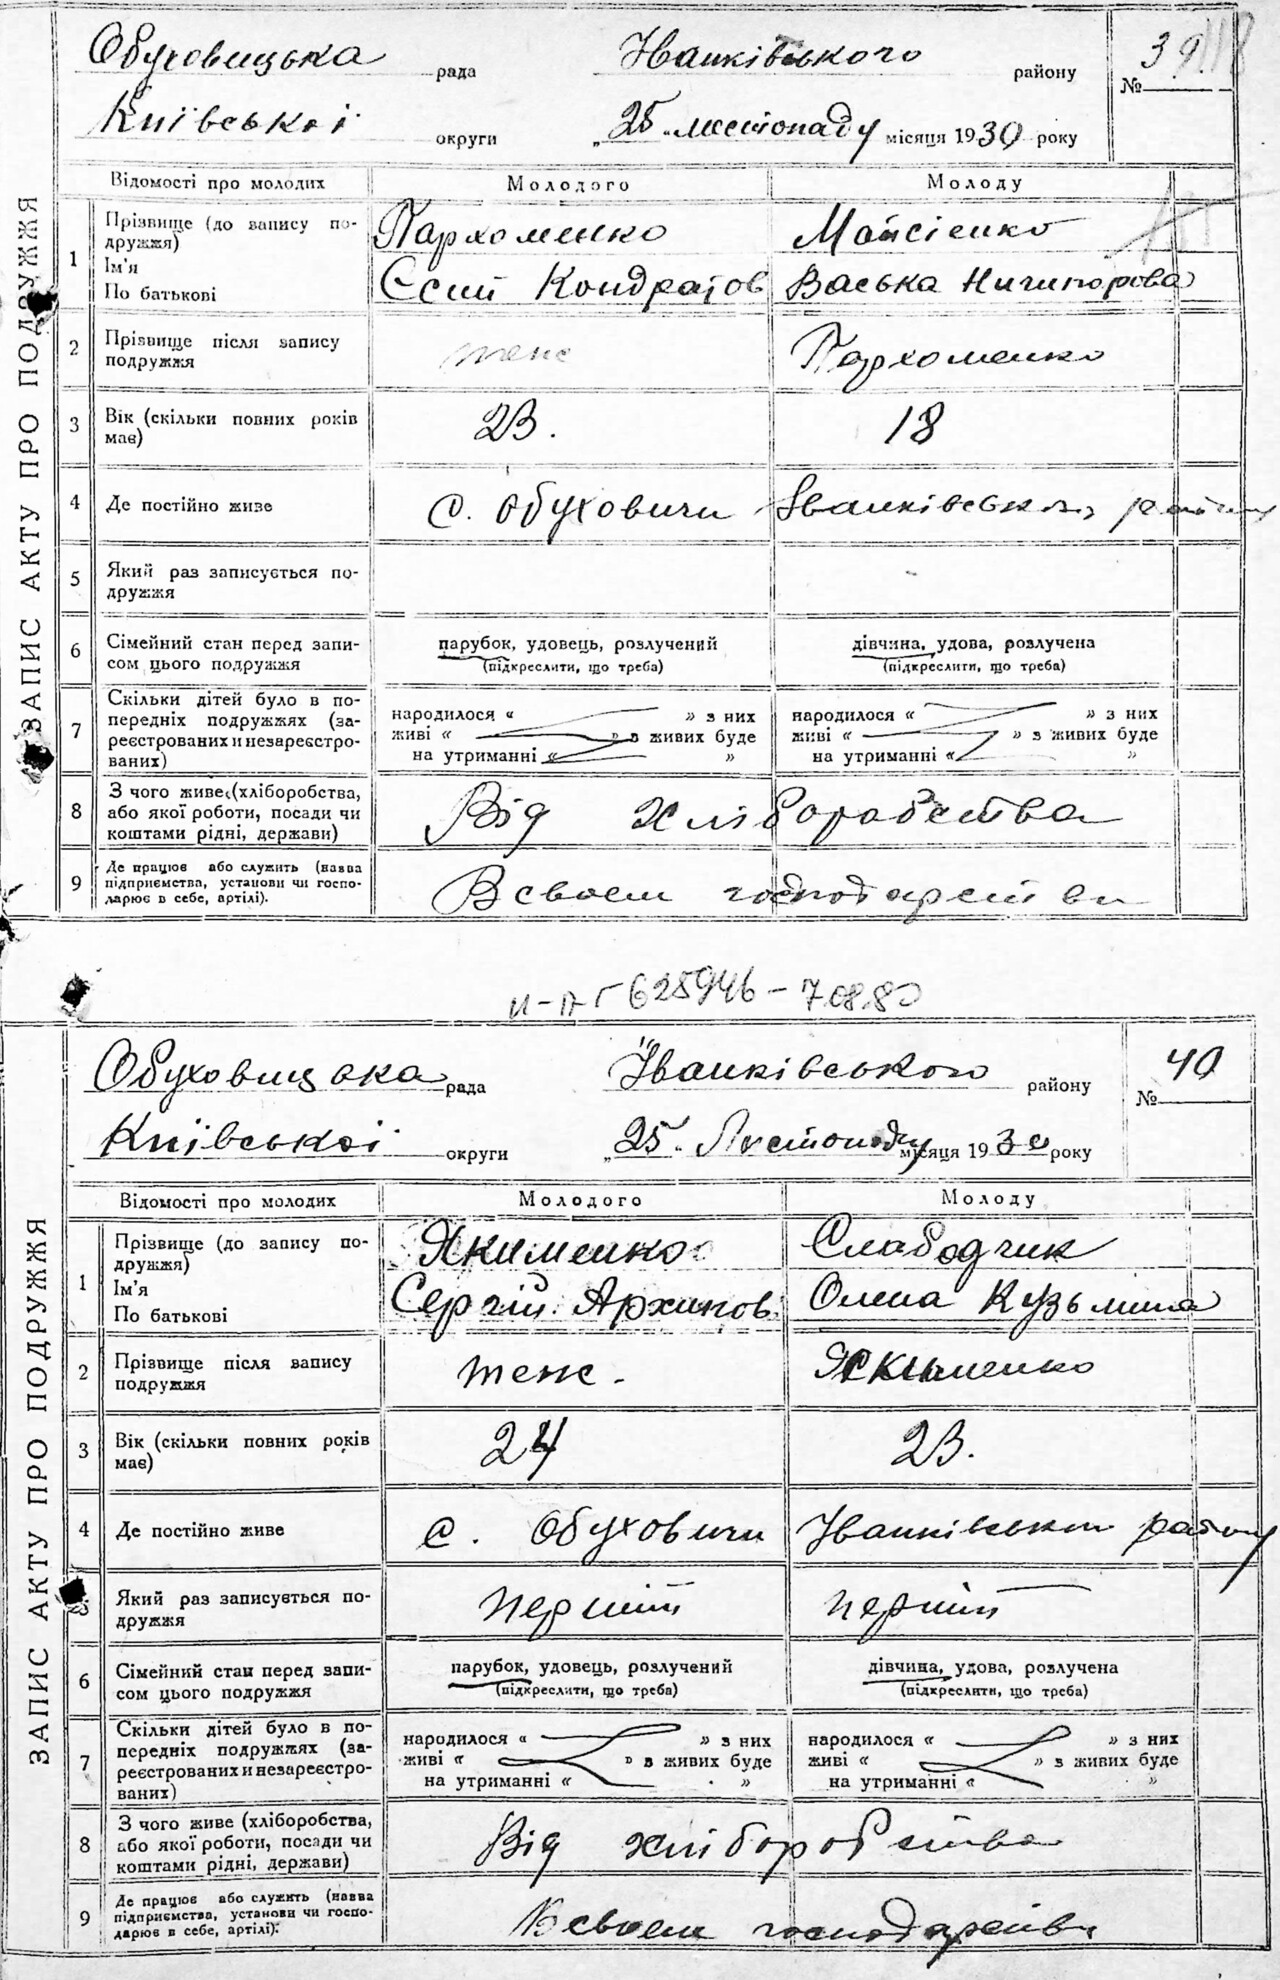 ЗАПИС АКТУ ПРО ПОДРУЖЖЯ
Обуховицька рада Іванківського району № 39
Київської округи „25 „ листопаду місяця 1930 року
Відомості про молодих Молодого Молоду
1 Прізвище (до запису по-дружжя) Пархоменко Мойсієнко
Ім'я
По батькові Єсип Кондратов Васька Ничипорова
2 Прізвище після запису подружжя теж Пархоменко
3 Вік (скільки повних років має) 23. 18
4 Де постійно живе с. Обуховичи Іванківського району
5 Який раз записується по-дружжя
6 Сімейний стан перед запи-сом цього подружжя парубок, удовець, розлучений (підкреслити, що треба) дівчина, удова, розлучена (підкреслити, що треба)
7 Скільки дітей було в по-передніх подружжях (за-реєстрованих и незареєстро-ваних) народилося « » з них живі « » з живих буде на утриманні « » народилося « » з них живі « » з живих буде на утриманні « »
8 З чого живе (хліборобства, або якої роботи, посади чи коштами рідні, держави) Від хліборобства
9 Де працює або служить (назва підприємства, установи чи госпо-дарює в себе, артілі). В своем господарстви
625946 – 7.08.80
ЗАПИС АКТУ ПРО ПОДРУЖЖЯ
Обуховицька рада Іванківського району № 40
Київської округи „25 „ Листопаду місяця 1930 року
Відомості про молодих Молодого Молоду
1 Прізвище (до запису по-дружжя) Якименко Слабодчик
Ім'я
По батькові Сергій Архипов Олена Кузьмина
2 Прізвище після запису подружжя теж. Якименко
3 Вік (скільки повних років має) 24 23.
4 Де постійно живе с. Обуховичи Іванківськои району
5 Який раз записується по-дружжя перший перший
6 Сімейний стан перед запи-сом цього подружжя парубок, удовець, розлучений (підкреслити, що треба) дівчина, удова, розлучена (підкреслити, що треба)
7 Скільки дітей було в по-передніх подружжях (за-реєстрованих и незареєстро-ваних) народилося « » з них живі « » з живих буде на утриманні « » народилося « » з них живі « » з живих буде на утриманні « »
8 З чого живе (хліборобства, або якої роботи, посади чи коштами рідні, держави) Від хліборобства
9 Де працює або служить (назва підприємства, установи чи госпо-дарює в себе, артілі). В своем господарстви